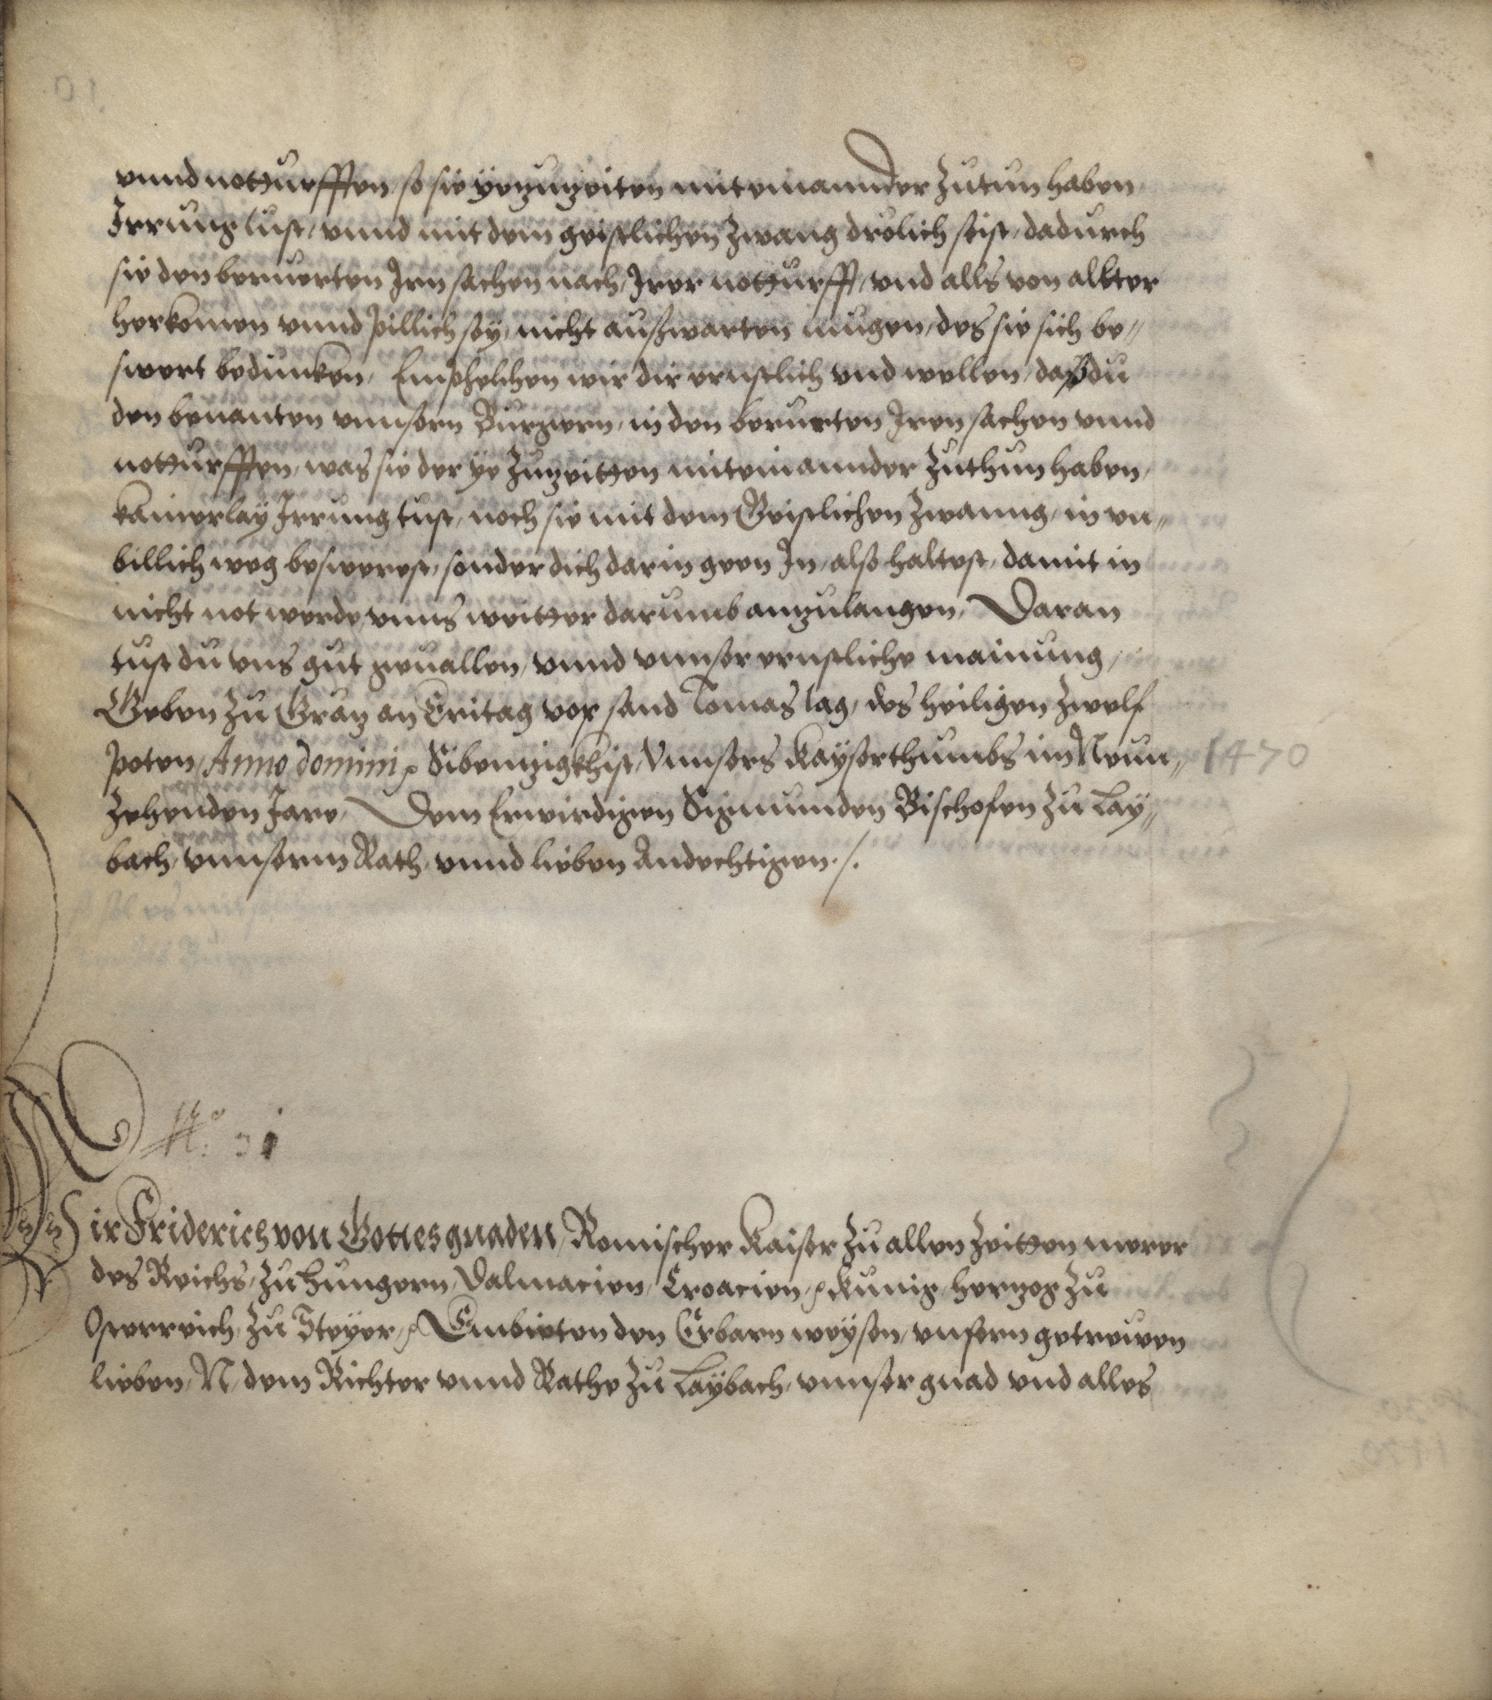 vnnd notturfften, so sie yezuzeiten miteinannder zutun haben
Irrung tust, vnnd mit dem geistlichen zwang drölich seist, dadurch
sie den beruerten Irn sachen nach Irer notturfft, vnd alls von allter
herkomen vnnd pillich sey, nicht außwarten mugen, des sie sich be„
swert bedunken, Emphelhen wir dir ernstlich vnd wellen, daß du
den benanten vnnsern Burgern, in den berurten Iren sachen vnnd
notturfften, was sie der ye zuzeitten miteinannder zuthun haben,
kainerlay Irrung tust, noch sie mit dem Geistlichen zwanng, in vn„
billich weg beswerest, sonder dich darin geen In, alß haltest, damit in
nicht not werde vnns weitter darumb anzulangen, Daran
tust du vns gut geuallen, vnnd vnnser ernstliche mainung,
Geben zu Graz an Eritag vor sand Tomas tag, des heiligen zwelf
poten, Anno domini Sibenzigkhist, Vnnsers Kayserthumbs im Neun„ 1470
zehenden Jare, Dem Erwirdigen Sigmunden Bischofen zu Lay„
bach, vnnserm Rath, vnnd lieben Andechtigen ./.
No: 31
Wir Friderich von Gottes gnaden, Romischer Kaiser zu allen Zeitten merer
des Reichs, zu Hungern, Dalmacien, Croacien, Kunig, hertzog zu
Osterreich, zu Steyer, Embieten den Erbarn weysen, vnsern getrewen
lieben, N, dem Richter vnnd Rathe zu Laybach, vnnser gnad vnd alles